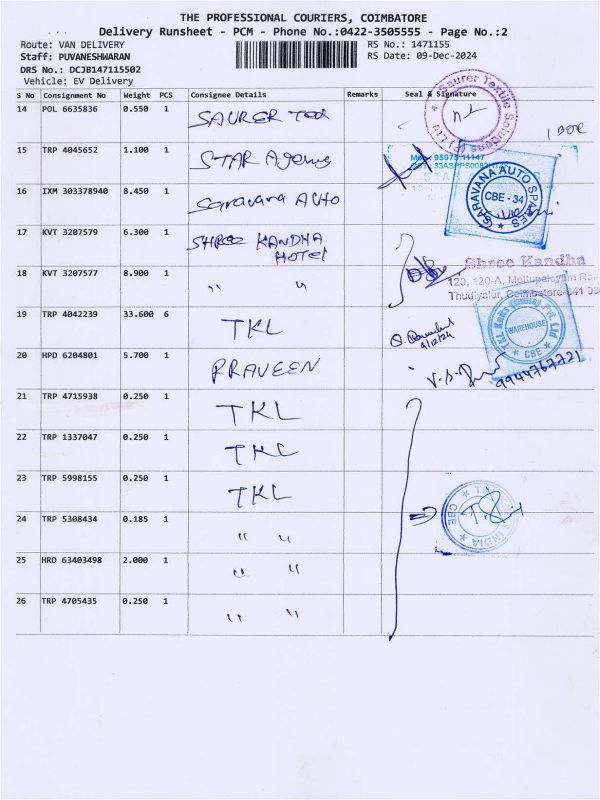 THE PROFESSIONAL COURIERS, COIMBATORE
Delivery Runsheet - PCM - Phone No.:0422-3505555 - Page No.:2
Route: VAN DELIVERY
RS No.: 1471155
Staff: PUVANESHWARAN
RS Date: 09-Dec-2024
DRS No.: DCJB147115502
Vehicle: EV Delivery
S No Consignment No Weight PCS Consignee Details Remarks Seal & Signature
14 POL 6635836 0.550 1 SAURER
Saurer Textile Solutions
1 BOX
15 TRP 4045652 1.100 1 STAR Agency
16 IXM 303378940 8.450 1 Saravana AUTO
SARAVANA AUTO SPARES
CBE - 34
17 KVT 3207579 6.300 1 SHREE KANDHA HOTEL
Shree Kandha
120, 120-A, Mettupalayam
Thudiyalur, Coimbatore-641
18 KVT 3207577 8.900 1 " "
19 TRP 4042239 33.600 6 TKL
9/12/24
TKL Knits Pvt. Ltd
WAREHOUSE
CBE
20 HPD 6204801 5.700 1 PRAVEEN
9944767721
21 TRP 4715938 0.250 1 TKL
22 TRP 1337047 0.250 1 TKL
23 TRP 5998155 0.250 1 TKL
24 TRP 5308434 0.185 1 " "
CBE
25 HRD 63403498 2.000 1 " "
26 TRP 4705435 0.250 1 " "